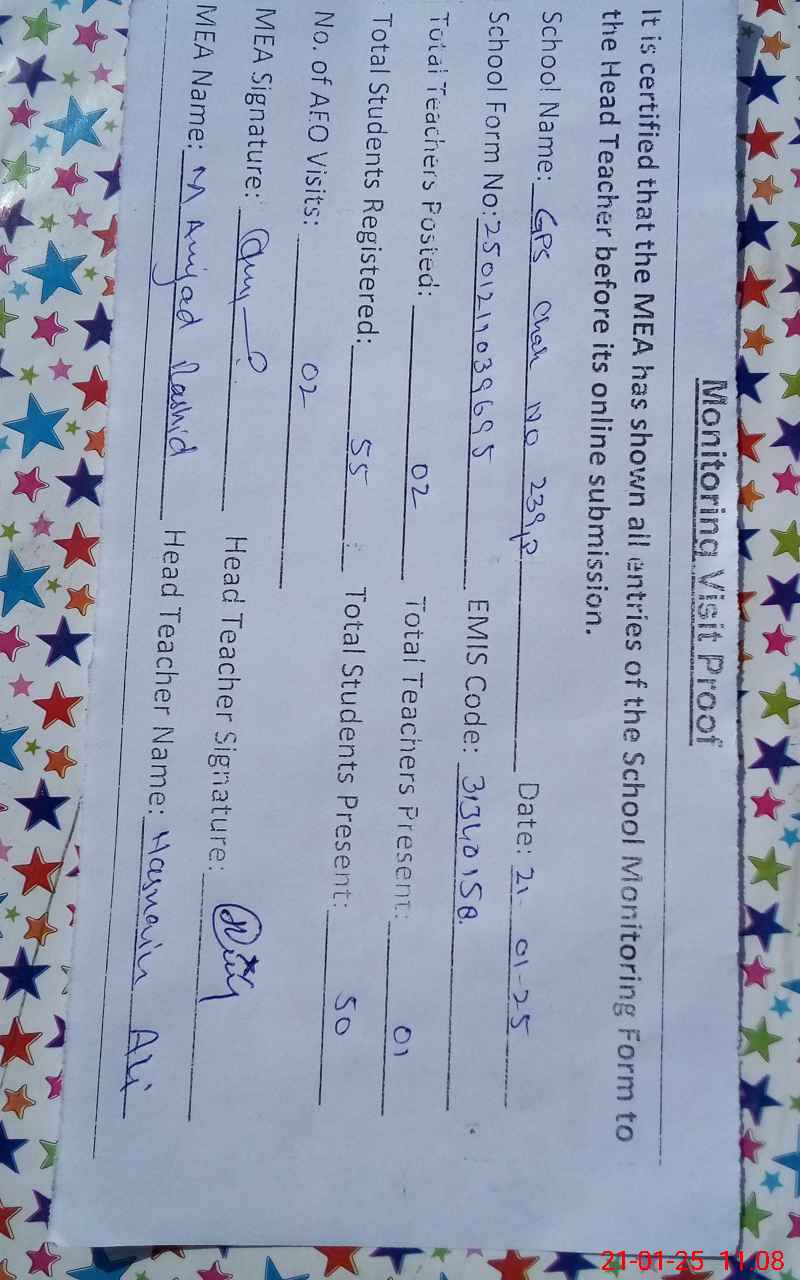 Monitoring Visit Proof
It is certified that the MEA has shown all entries of the School Monitoring Form to
the Head Teacher before its online submission.
School Name: GPS Chak No 239/2 Date: 21-01-25
School Form No: 2501211039695 EMIS Code: 31340158
Total Teachers Posted: 02 Total Teachers Present: 01
Total Students Registered: 55 Total Students Present: 50
No. of AEO Visits: 02
MEA Signature: Head Teacher Signature:
MEA Name: M Amjad Rashid Head Teacher Name: Hasnain Ali
21-01-25 11:08